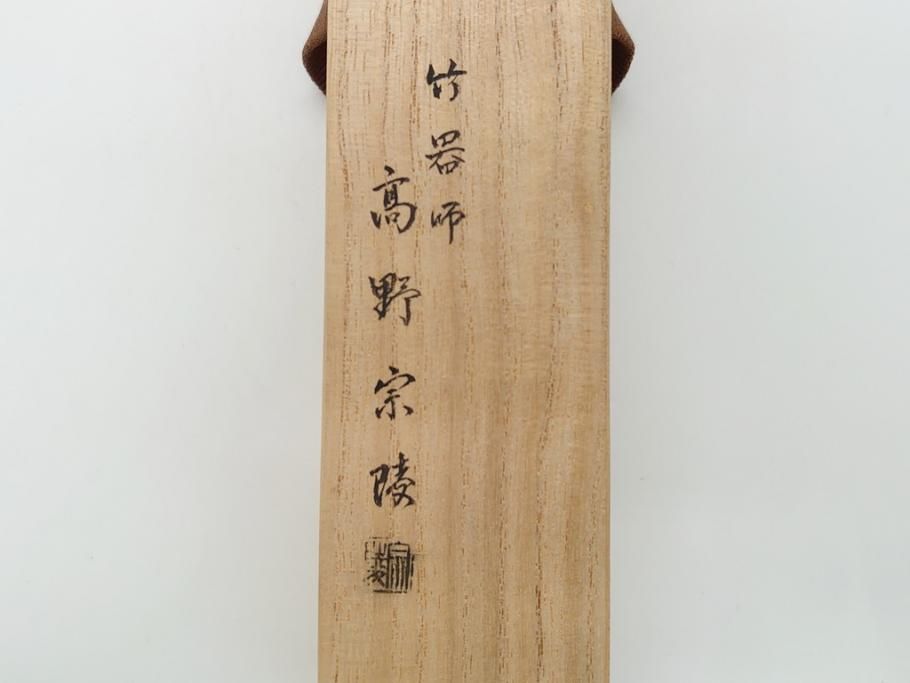 竹器師
高野宗陵